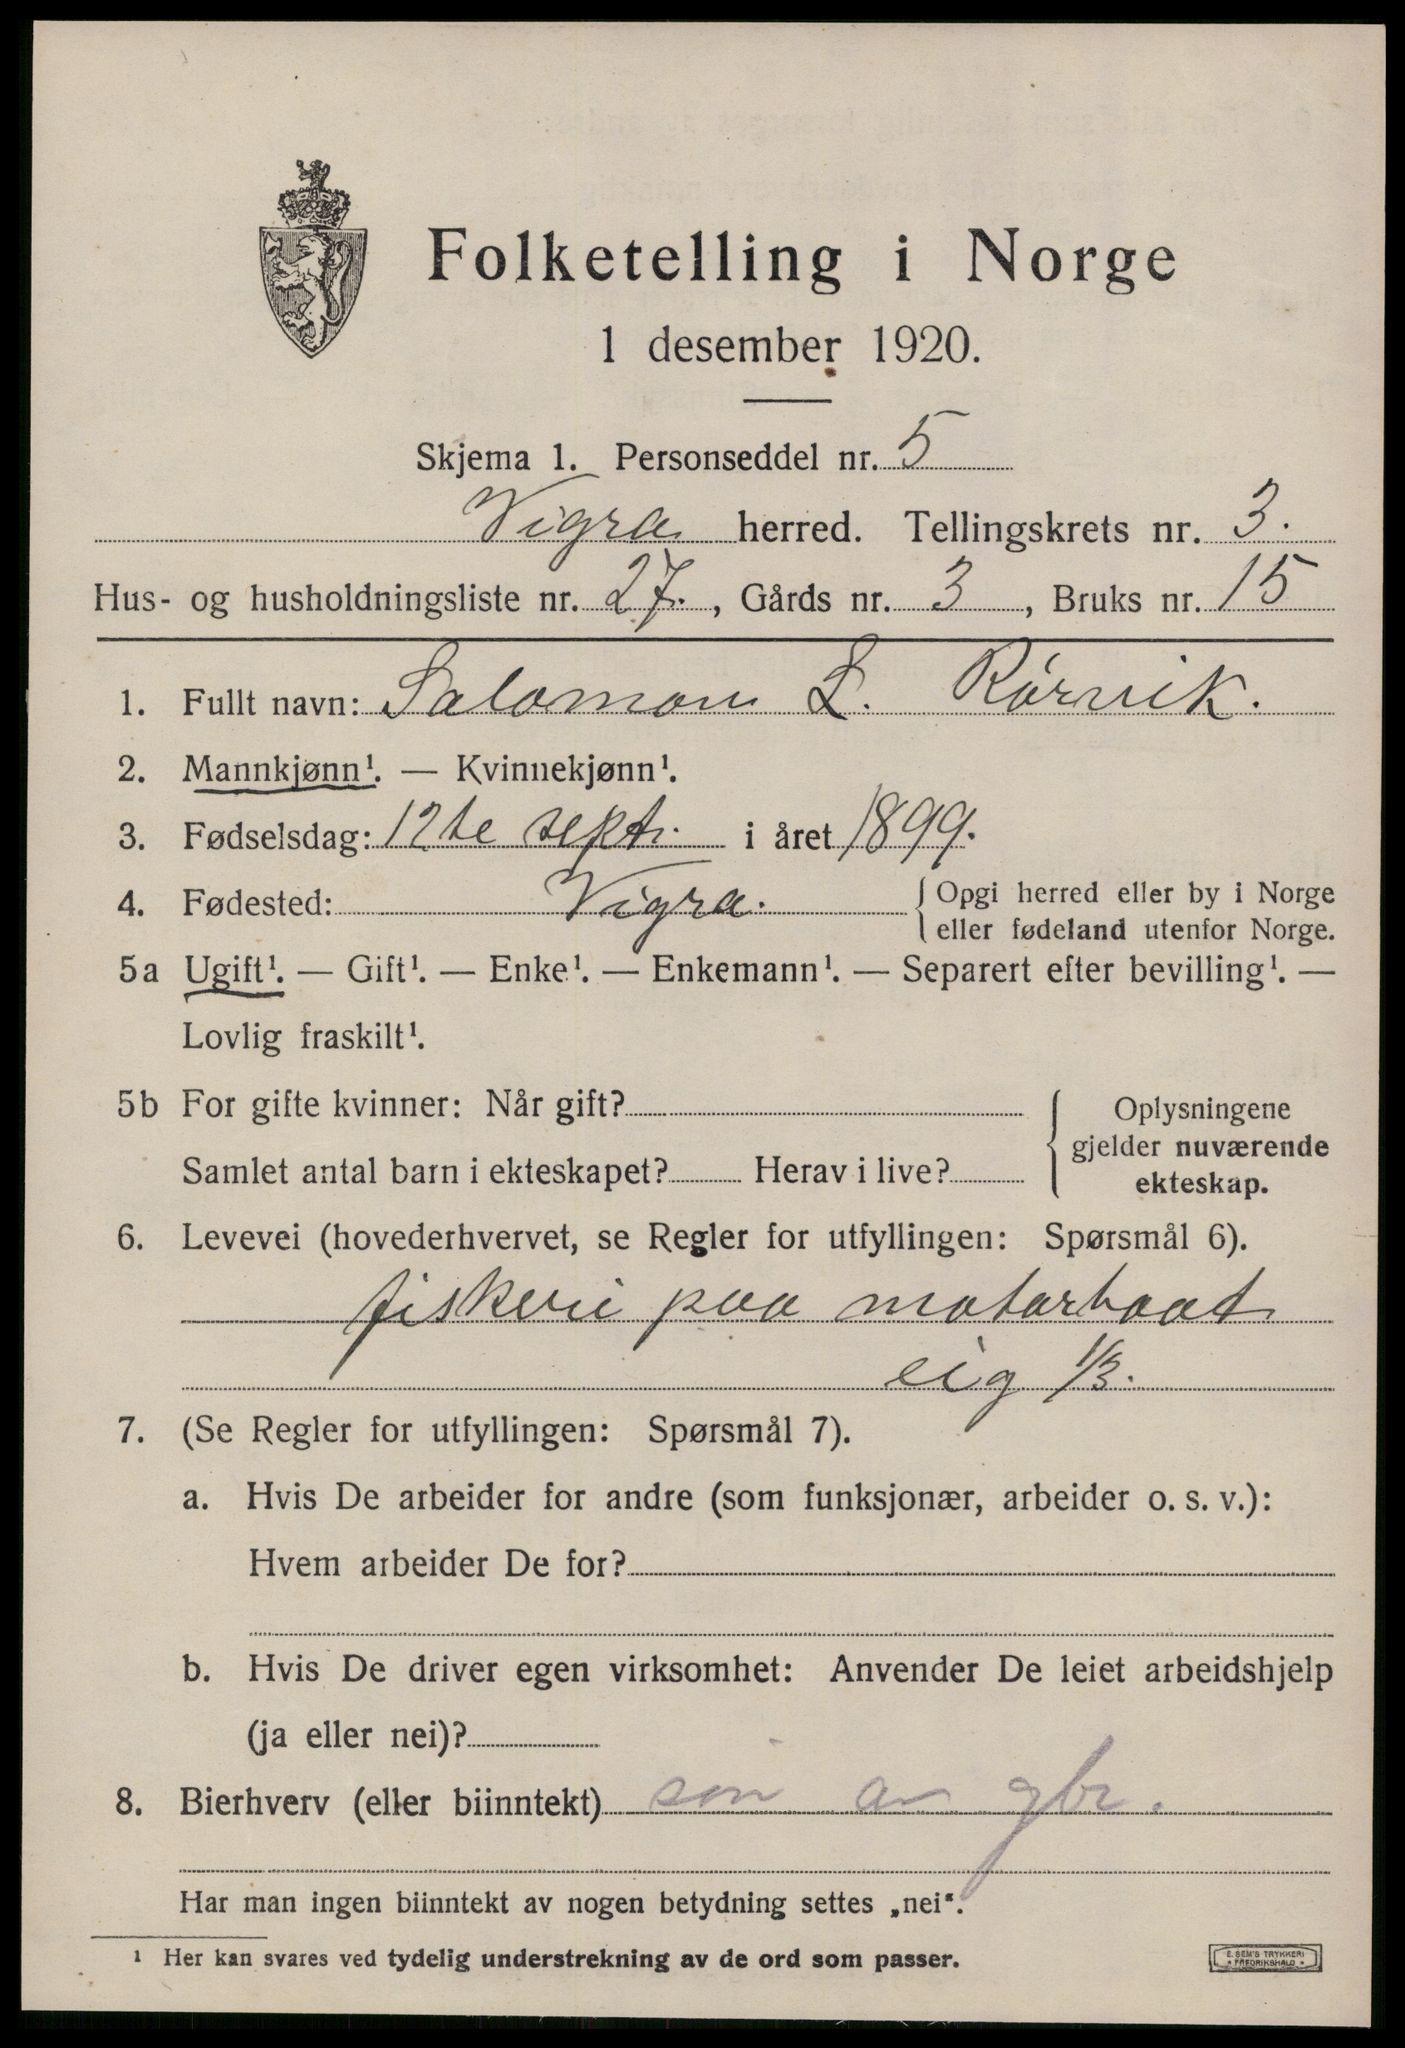 Folketelling i Norge
1 desember 1920.
Skjema 1. Personseddel nr. 5
Vigra herred. Tellingskrets nr. 3.
Hus- og husholdningsliste nr. 27., Gårds nr. 3, Bruks nr. 15
1. Fullt navn: Salomon L. Rörvik.
2. Mannkjønn¹. — Kvinnekjønn¹.
3. Fødselsdag: 12te sept. i året 1899.
4. Fødested: Vigra. { Opgi herred eller by i Norge
eller fødeland utenfor Norge.
5a Ugift¹. — Gift¹. — Enke¹. — Enkemann¹. — Separert efter bevilling¹. —
Lovlig fraskilt¹.
5b For gifte kvinner: Når gift? { Oplysningene
gjelder nuværende
Samlet antal barn i ekteskapet? Herav i live? ekteskap.
6. Levevei (hovederhvervet, se Regler for utfyllingen: Spørsmål 6).
fiskeri paa motorbaat
eig 1/3.
7. (Se Regler for utfyllingen: Spørsmål 7).
a. Hvis De arbeider for andre (som funksjonær, arbeider o. s. v.):
Hvem arbeider De for?
b. Hvis De driver egen virksomhet: Anvender De leiet arbeidshjelp
(ja eller nei)?
8. Bierhverv (eller biinntekt) sön av gbr.
Har man ingen biinntekt av nogen betydning settes „nei".
¹ Her kan svares ved tydelig understrekning av de ord som passer.
E. SEM'S TRYKKERI
* FREDRIKSHALD *